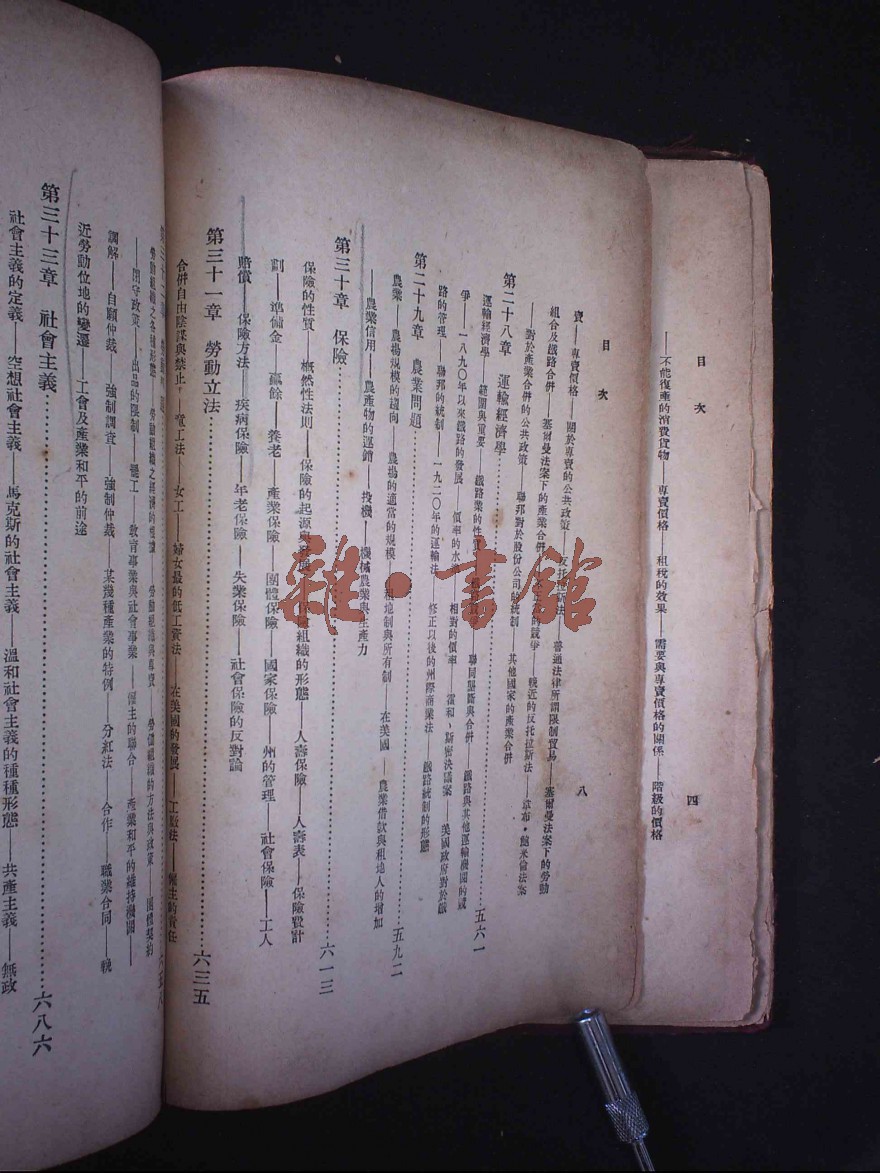 目次
四
——不能復產的消費貨物——專賣價格——租稅的效果——需要與專賣價格的關係——階級的價格
目次
八
賣——專賣價格——關於專賣的公共政策——反托拉斯法——普通法律所謂限制貿易——塞爾曼法案下的勞動
組合及鐵路合併——塞爾曼法案下的產業合併——的競爭——輓近的反托拉斯法——草布·鮑米倫法案
——對於產業合併的公共政策——聯邦對於股份公司的統制——其他國家的產業合併
第二十八章 運輸經濟學……五六一
運輸經濟學——範圍與重要——鐵路業的性質——聯同壟斷與合併——鐵路與其他運輸機關的競
爭——一八九〇年以來鐵路的發展——價率的水——相對的價率——霍和、斯密決議案——美國政府對於鐵
路的管理——聯邦的統制——一九二〇年的運輸法——修正以後的州際商業法——鐵路統制的形態
第二十九章 農業問題……五九二
農業——農場規模的趨向——農場的適當的規模——租地制與所有制——在美國——農業借款與租地人的增加
——農業信用——農產物的運銷——投機——機械農業與生產力
第三十章 保險……六一三
保險的性質——概然性法則——保險的起源與發展——保險組織的形態——人壽保險——人壽表——保險費計
劃——準備金——贏餘——養老——產業保險——團體保險——國家保險——州的管理——社會保險——工人
賠償——保險方法——疾病保險——年老保險——失業保險——社會保險的反對論
第三十一章 勞動立法……六三五
合併自由陰謀與禁止——童工法——女工——婦女最的低工資法——在美國的發展——工廠法——僱主的責任
勞動組織之各種形態——勞動組織之經濟的——勞動組織與專賣——勞働組織的方法與政策——團體契約
——閉守政策——出品的限制——罷工——教育事業與社會事業——僱主的聯合——產業和平的維持機關——
調解——自願仲裁——強制調查——強制仲裁——某幾種產業的特例——分紅法——合作——職業合同——輓
近勞動位地的變遷——工會及產業和平的前途
第三十三章 社會主義……六八六
社會主義的定義——空想社會主義——馬克斯的社會主義——溫和社會主義的種種形態——共產主義——無政
雜·書館